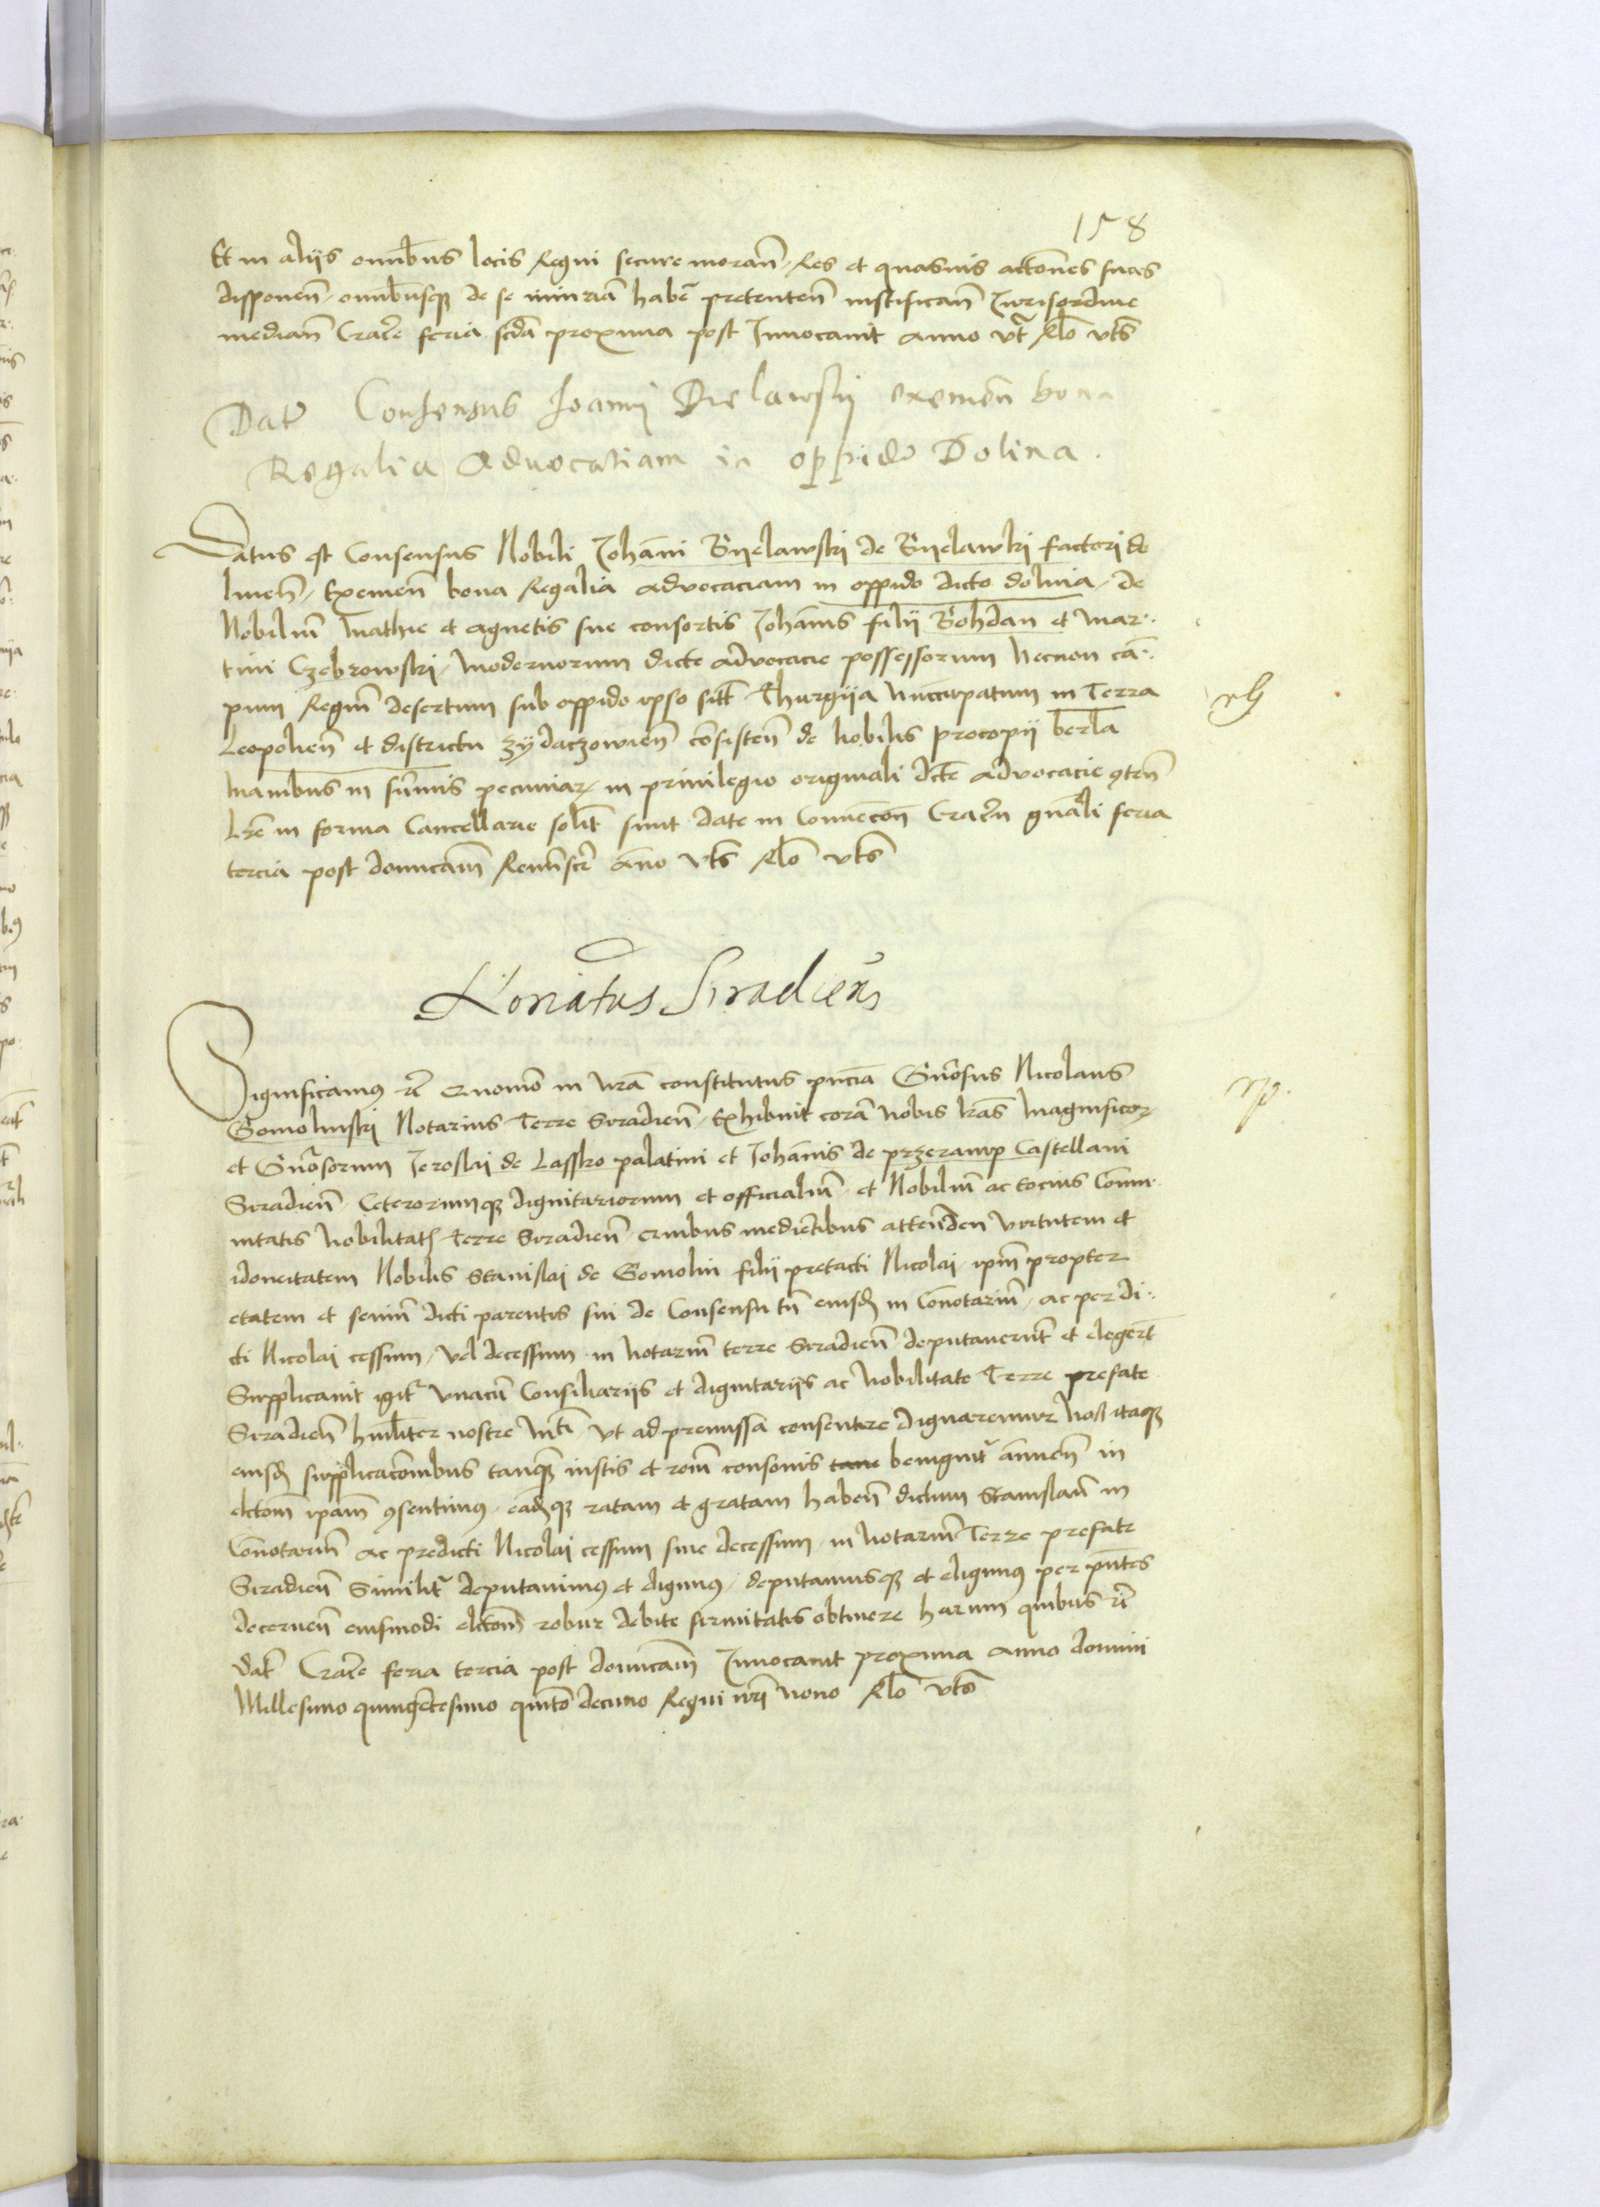 158
Et in aliis omnibus locis Regni secure moran̄ Res et quasuis actiones suas
disponen̄ omnibusqȝ de se iniuriā habē pretenten̄ iustifican̄ Jurisordine
median̄ Cracᵉ feria scdā proxima post Inuocauit anno vt Rlo vts
Datr Consensus Joanni Bielawski exemen̄ bona
Regalia Aduocatiam in oppido Dolina.
Datus est Consensus Nobili Johāni Byelawski de Byelawki factori do
linen̄ Exemen̄ bona Regalia aduocaciam in oppido dicto dolina de
Nobiliū Mathie et agnetis sue consortis Johānis filii Bohdan et Mar
tini Czebrowski modernorum dicte aduocacie possessorum Necnon cā
pum Regiū desertum sub oppido ipso sitū Thurzya nūcupatum in Terra
Leopolien̄ et districtu zydaczowien̄ consisten̄ de nobilis procopii berla
manibus in summis pecuniar in priuilegio originali dcte aduocacie gten̄
Lrē in forma Cancellarie solit sunt date in Conuēcōn Cracn̄ gnāli feria
tercia post dominicam Reminscr̄ āno vts Rlo vts
Noriatus Siradieñ
Significamus r̄ Quomō in nrā constitutus pn̄ciā Gn̄rosus Nicolaus
Gomolinski Notarius Terre Siradien̄ Exhibuit corā nobis lrās Magnificor
et Gn̄rosorum Jeroslai de Lassko palatini et Johānis de przeramp Castellani
Siradien̄ Ceterorumqȝ dignitariorum et officialiū et Nobiliū ac tocius Comu
nitatis nobilitatis Terre Siradien̄ Quibus medientibus attenden̄ virtutem et
idoneitatem Nobilis Stanislai de Gomolin filii pretacti Nicolai ipm̄ propter
etatem et seniū dicti parentis sui de Consensu tn̄ eiusd̄ in Cōnotariū ac perdi
cti Nicolai cessum vel decessum in notariū terre Siradien̄ deputauerūt et elegert̄
Supplicauit igitr vnacū Consiliariis et dignitariis ac nobilitate Terre prefate
Siradien̄ hūiliter nostre Mti vt ad premissa consentire dignaremur Nos itaqȝ
eiusd̄ supplicacōnibus tanqȝ iustis et rōni consonis tane benignitr annuen̄ in
elctōm ipam̄ gsentimus eadēqȝ ratam et gratam haben̄ dictum Stanislaū in
Cōnotariū ac predicti Nicolai cessum siue decessum in notariū Terre prefate
Siradien̄ Similitr deputauimus et eligimus deputamusqȝ et eligimus per pn̄tes
decernen̄ eiusmodi elctōm robur debite firmitatis obtinere harum quibus r̄
Dat̄ Cracᵉ feria tercia post dominicam Inuocauit proxima anno domini
Millesimo quingētesimo quīto decimo Regni nr̄i nono Rlo vts